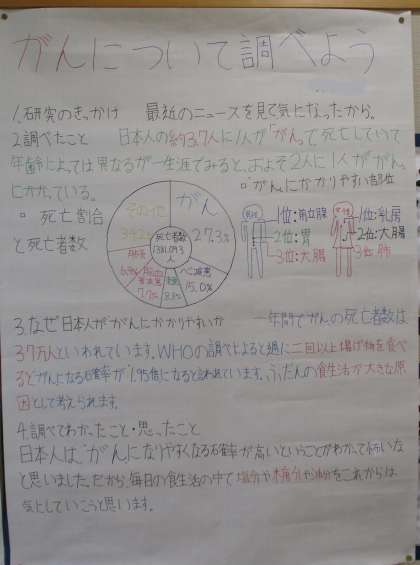 がんについて調べよう
1.研究のきっかけ 最近のニュースを見て気になったから。
2.調べたこと 日本人の約3.7人に1人が「がん」で死亡していて
年齢によっては異なるが一生涯でみると、およそ2人に1人ががんに
かかっている。
・がんにかかりやすい部位
・死亡割合
と死亡者数
がん
27.3%
心疾患
15.0%
老衰
脳血管疾患
肺炎
その他
死亡者数
人
男性
1位:前立腺
2位:胃
3位:大腸
女性
1位:乳房
2位:大腸
3位:肺
3.なぜ日本人ががんにかかりやすいか 一年間でがんの死亡者数は
37万人といわれています。WHOの調べによると週に二回以上揚げ物を食べ
るとがんになる確率が1.95倍になると言われています。ふだんの食生活が大きな原
因として考えられます。
4.調べてわかったこと・思ったこと
日本人は、がんになりやすくなる確率が高いということがわかって怖いな
と思いました。だから、毎日の食生活の中で塩分や糖分や油分をこれからは
気にしていこうと思います。